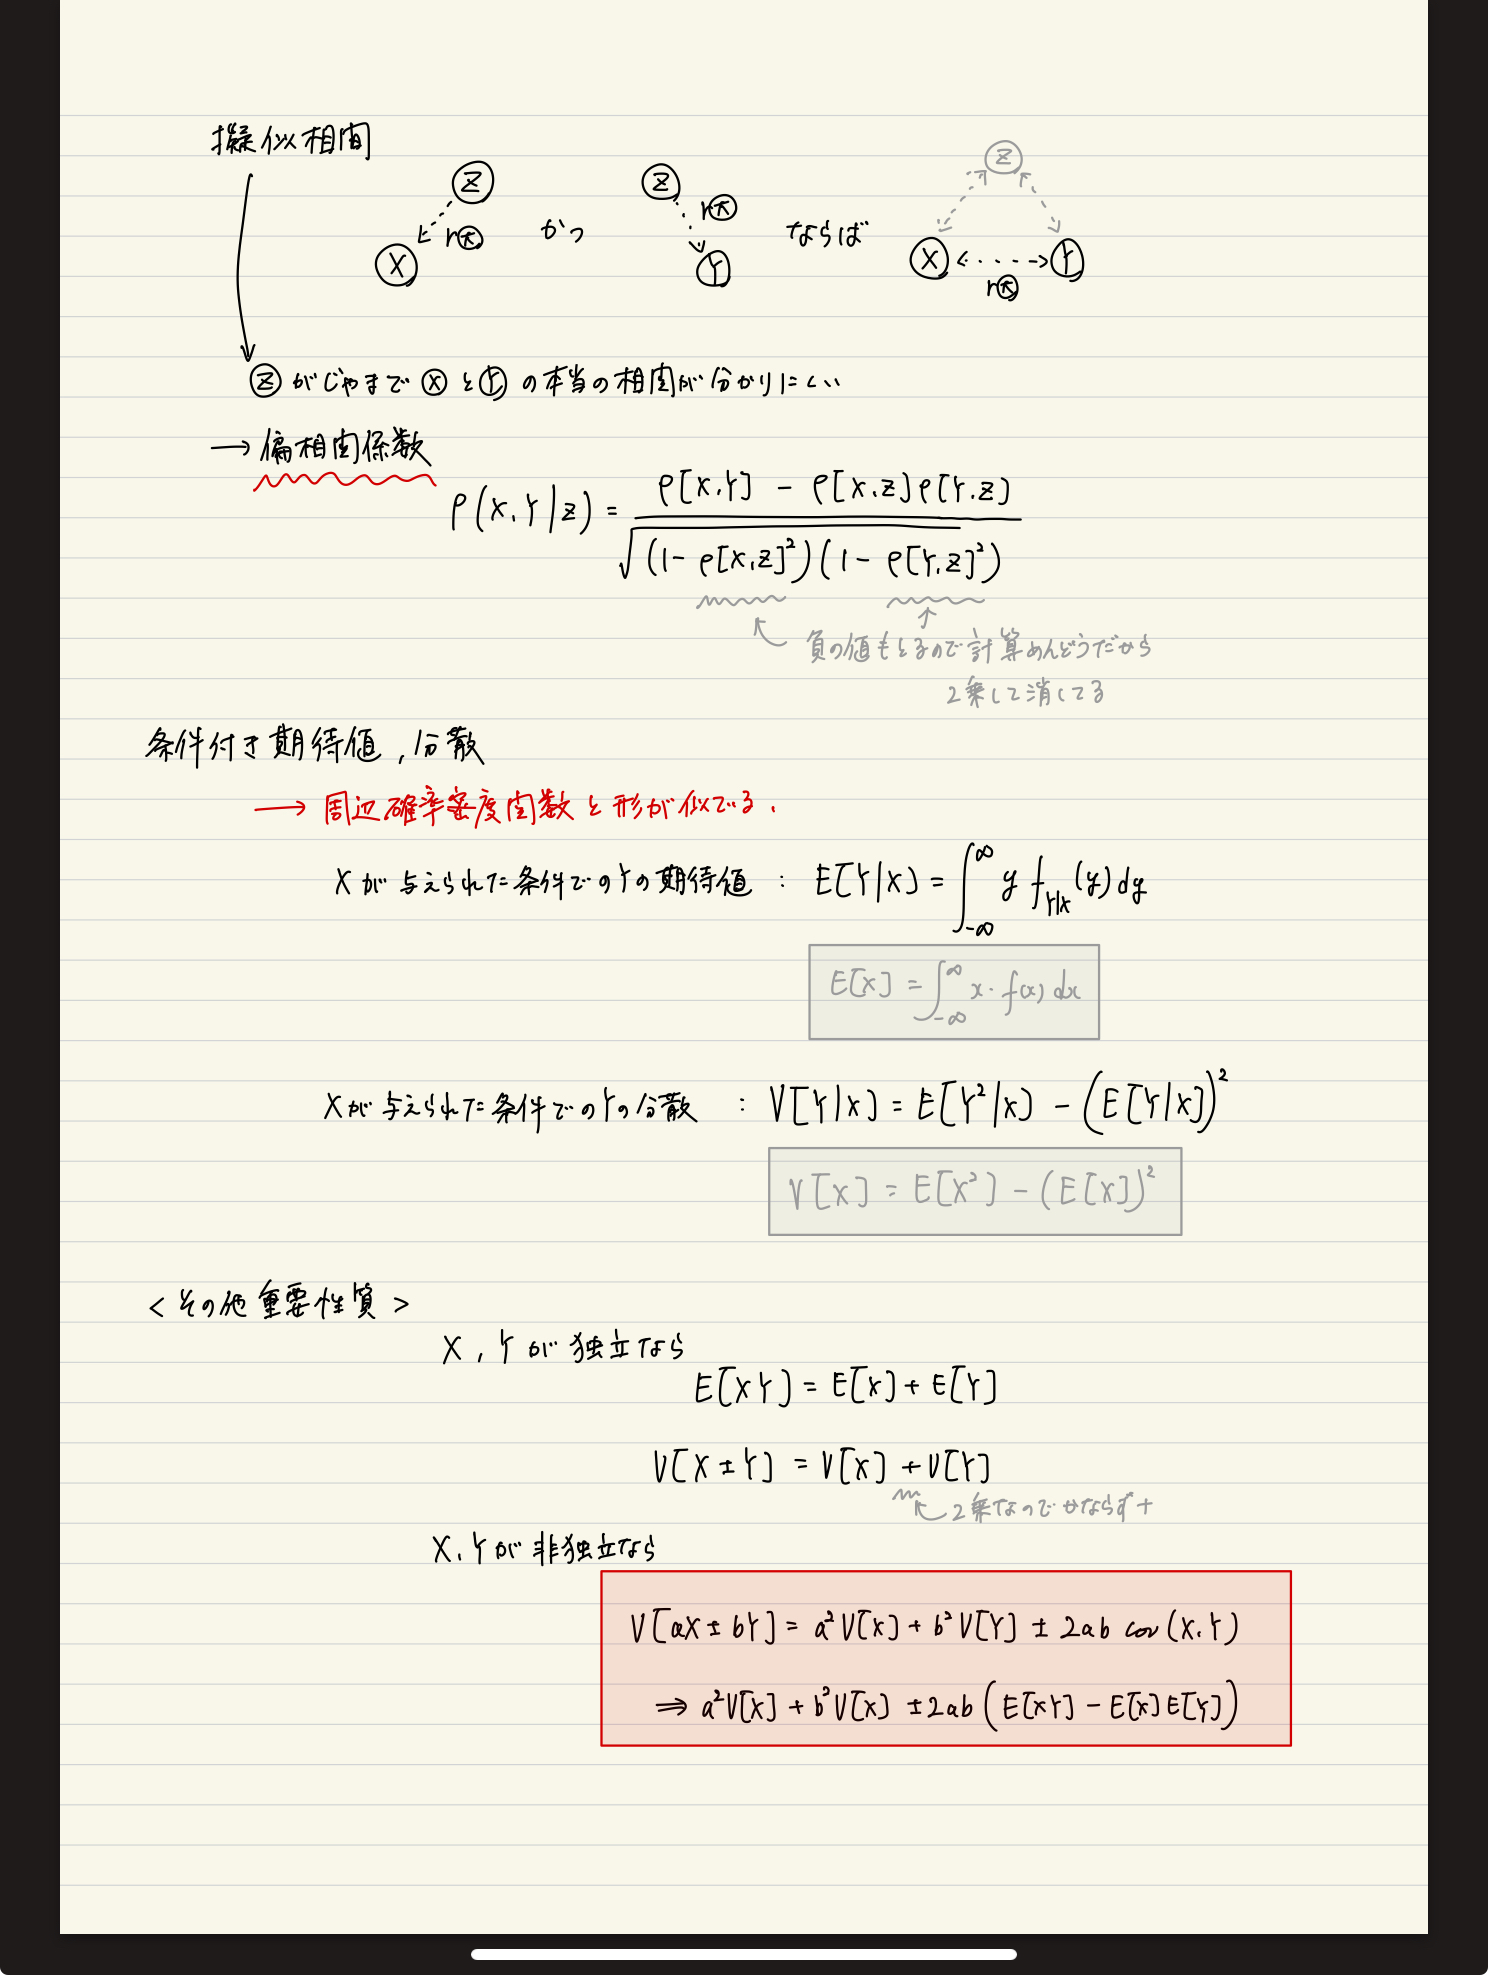 擬似相関
Z Z Z
r大 かつ r大 ならば
X Y X Y
r大
Zがじゃまで XとYの本当の相関が分かりにくい
→ 偏相関係数
ρ(X,Y|Z) = (ρ[X,Y] - ρ[X,Z]ρ[Y,Z]) / √((1-ρ[X,Z]²)(1-ρ[Y,Z]²))
負の値もとるので計算めんどうだから
2乗して消してる
条件付き期待値,分散
→ 周辺確率密度関数と形が似てる.
Xが与えられた条件でのYの期待値 : E[Y|X) = ∫_{-∞}^{∞} y f_{Y|X}(y)dy
E[X] = ∫_{-∞}^{∞} x・f(x)dx
Xが与えられた条件でのYの分散 : V[Y|X] = E[Y²|X) - (E[Y|X])²
V[X] = E[X²] - (E[X])²
<その他重要性質>
X,Yが独立なら
E[XY] = E[X] + E[Y]
V[X±Y] = V[X] + V[Y]
2乗なのでかならず+
X,Yが非独立なら
V[aX±bY] = a²V[X] + b²V[Y] ± 2ab cov(X,Y)
⇒ a²V[X] + b²V[X] ±2ab(E[XY] - E[X]E[Y])